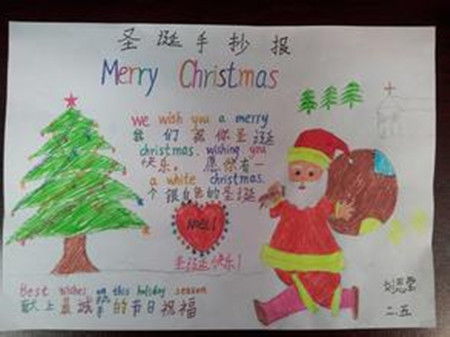 圣诞手抄报
Merry Christmas
we wish you a merry
我们祝你圣诞
christmas. wishing you
快乐，愿你有一
a white christmas.
个银白色的圣诞
NOEL!
圣诞快乐!
Best wishes on this holiday season
献上最诚挚的节日祝福
二.五